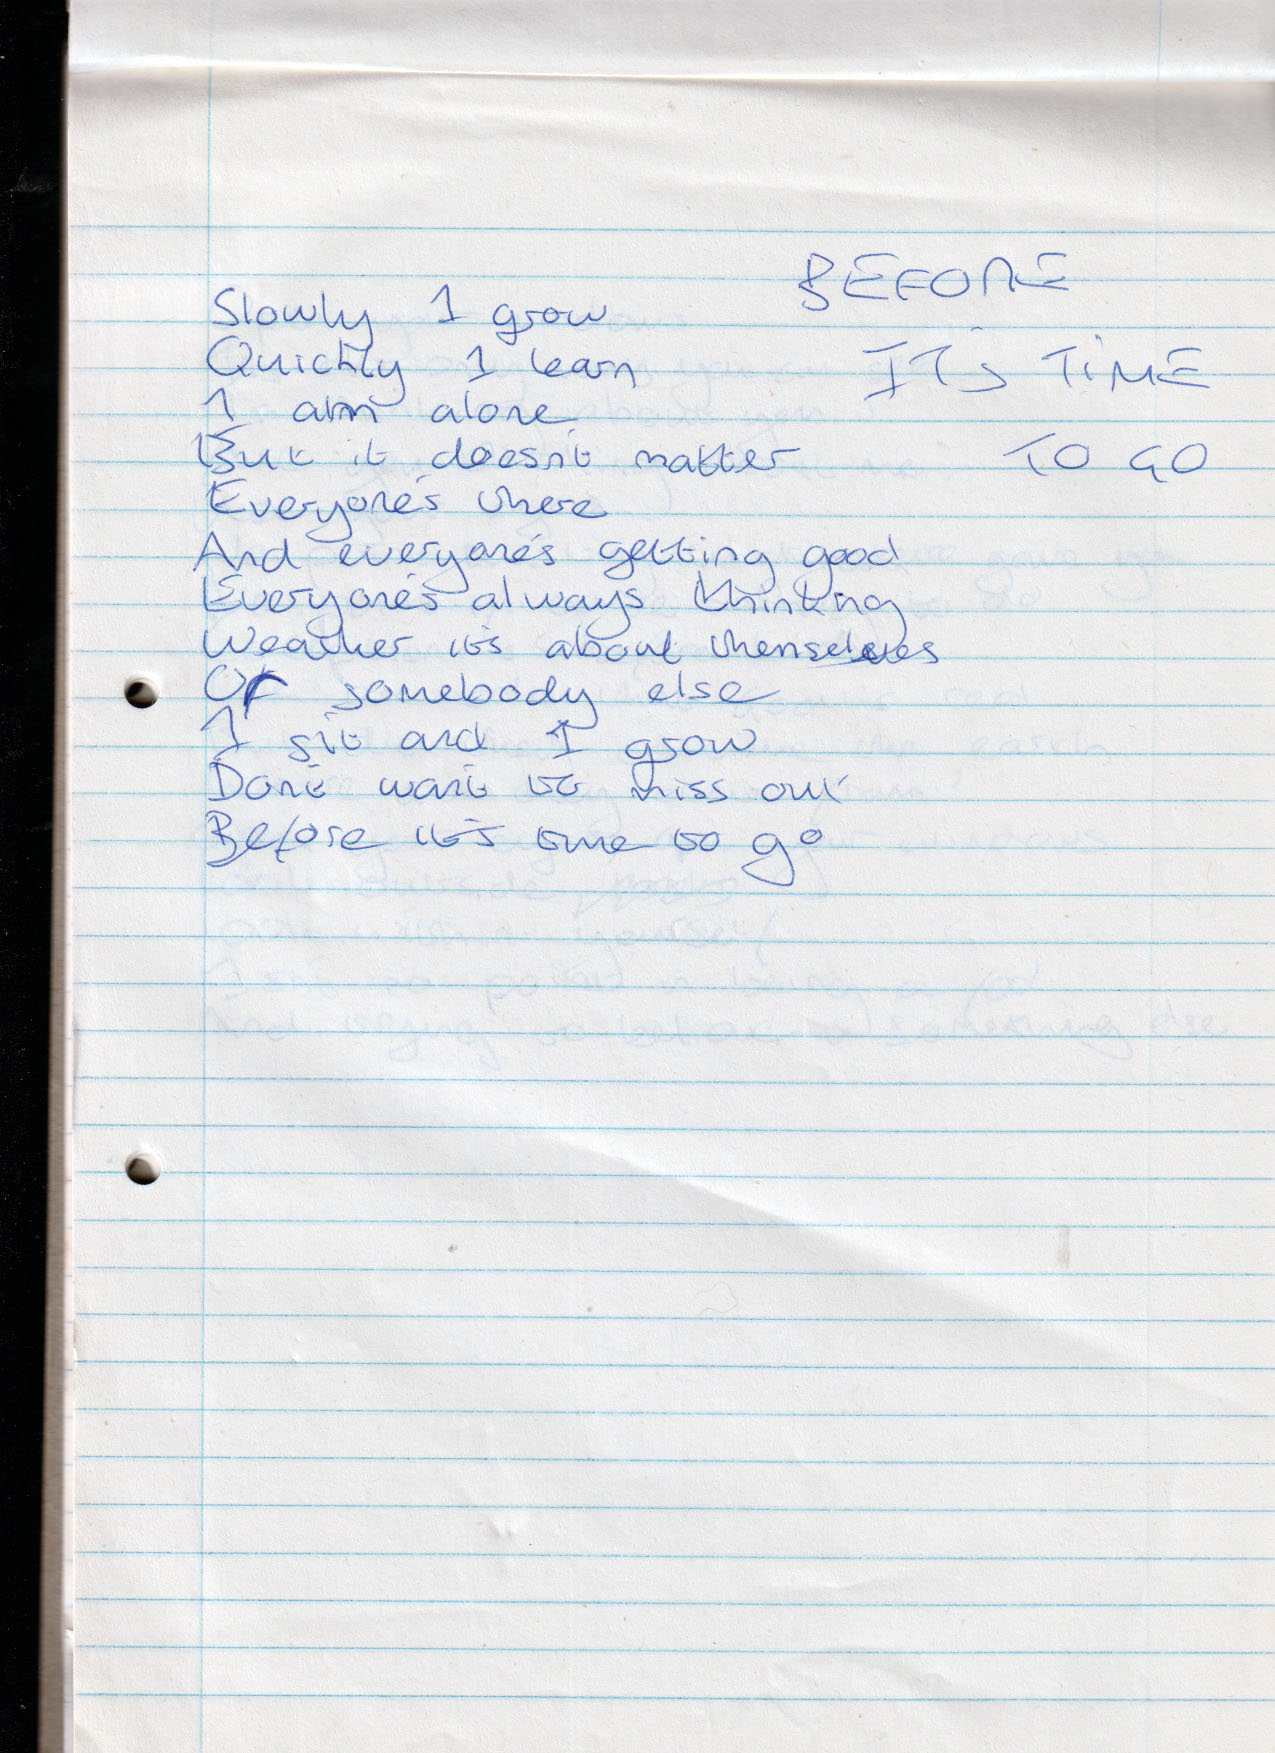 BEFORE
IT'S TIME
TO GO
Slowly I grow
Quickly I learn
I am alone
But it doesn't matter
Everyone's there
And everyone's getting good
Everyone's always thinking
Weather it's about themselves
Or somebody else
I sit and I grow
Don't want to miss out
Before it's time to go